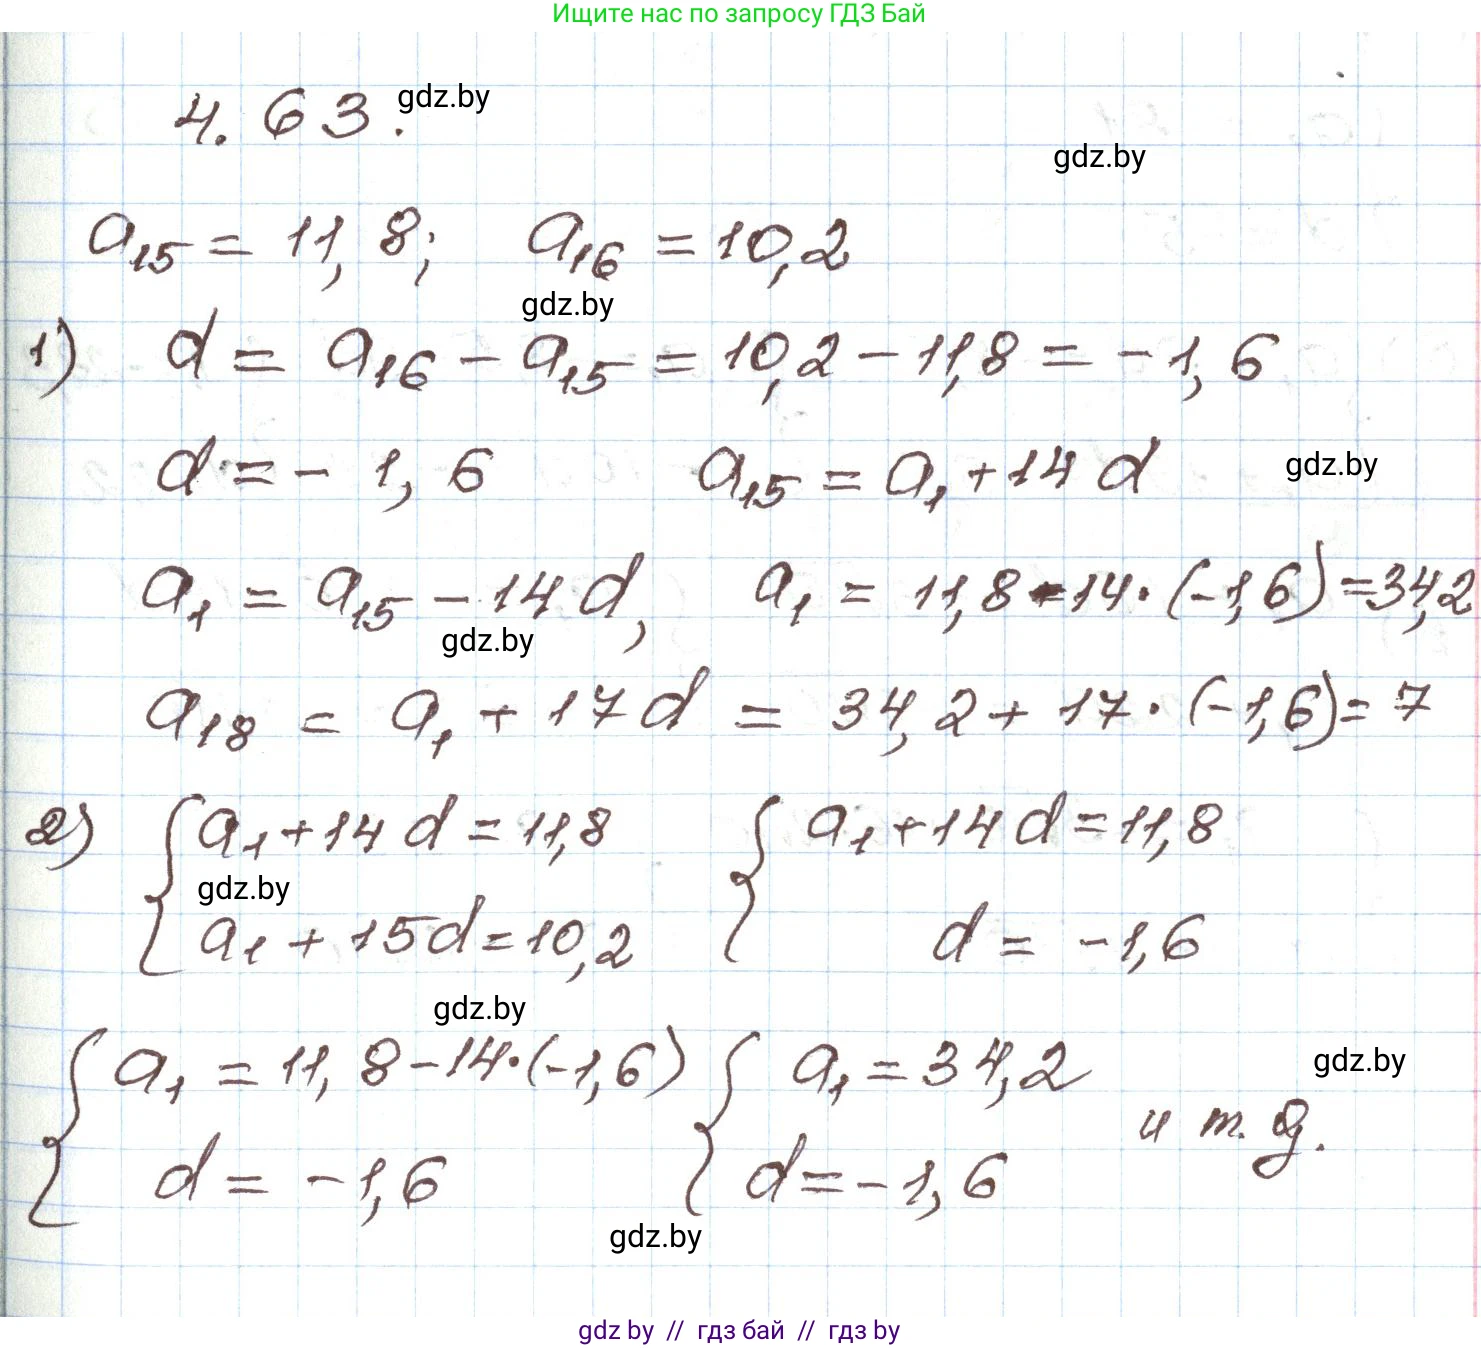 Ищите нас по запросу ГДЗ Бай
4.63. gdz.by
gdz.by
a₁₅ = 11,8; a₁₆ = 10,2
gdz.by
1) d = a₁₆ - a₁₅ = 10,2 - 11,8 = -1,6
d = -1,6 a₁₅ = a₁ + 14d gdz.by
a₁ = a₁₅ - 14d, a₁ = 11,8 - 14·(-1,6) = 34,2
gdz.by
a₁₈ = a₁ + 17d = 34,2 + 17·(-1,6) = 7
2) { a₁ + 14d = 11,8 { a₁ + 14d = 11,8
gdz.by
a₁ + 15d = 10,2 d = -1,6
gdz.by
{ a₁ = 11,8 - 14·(-1,6) { a₁ = 34,2 gdz.by
и т. д.
d = -1,6 d = -1,6
gdz.by
gdz by // гдз бай // гдз by